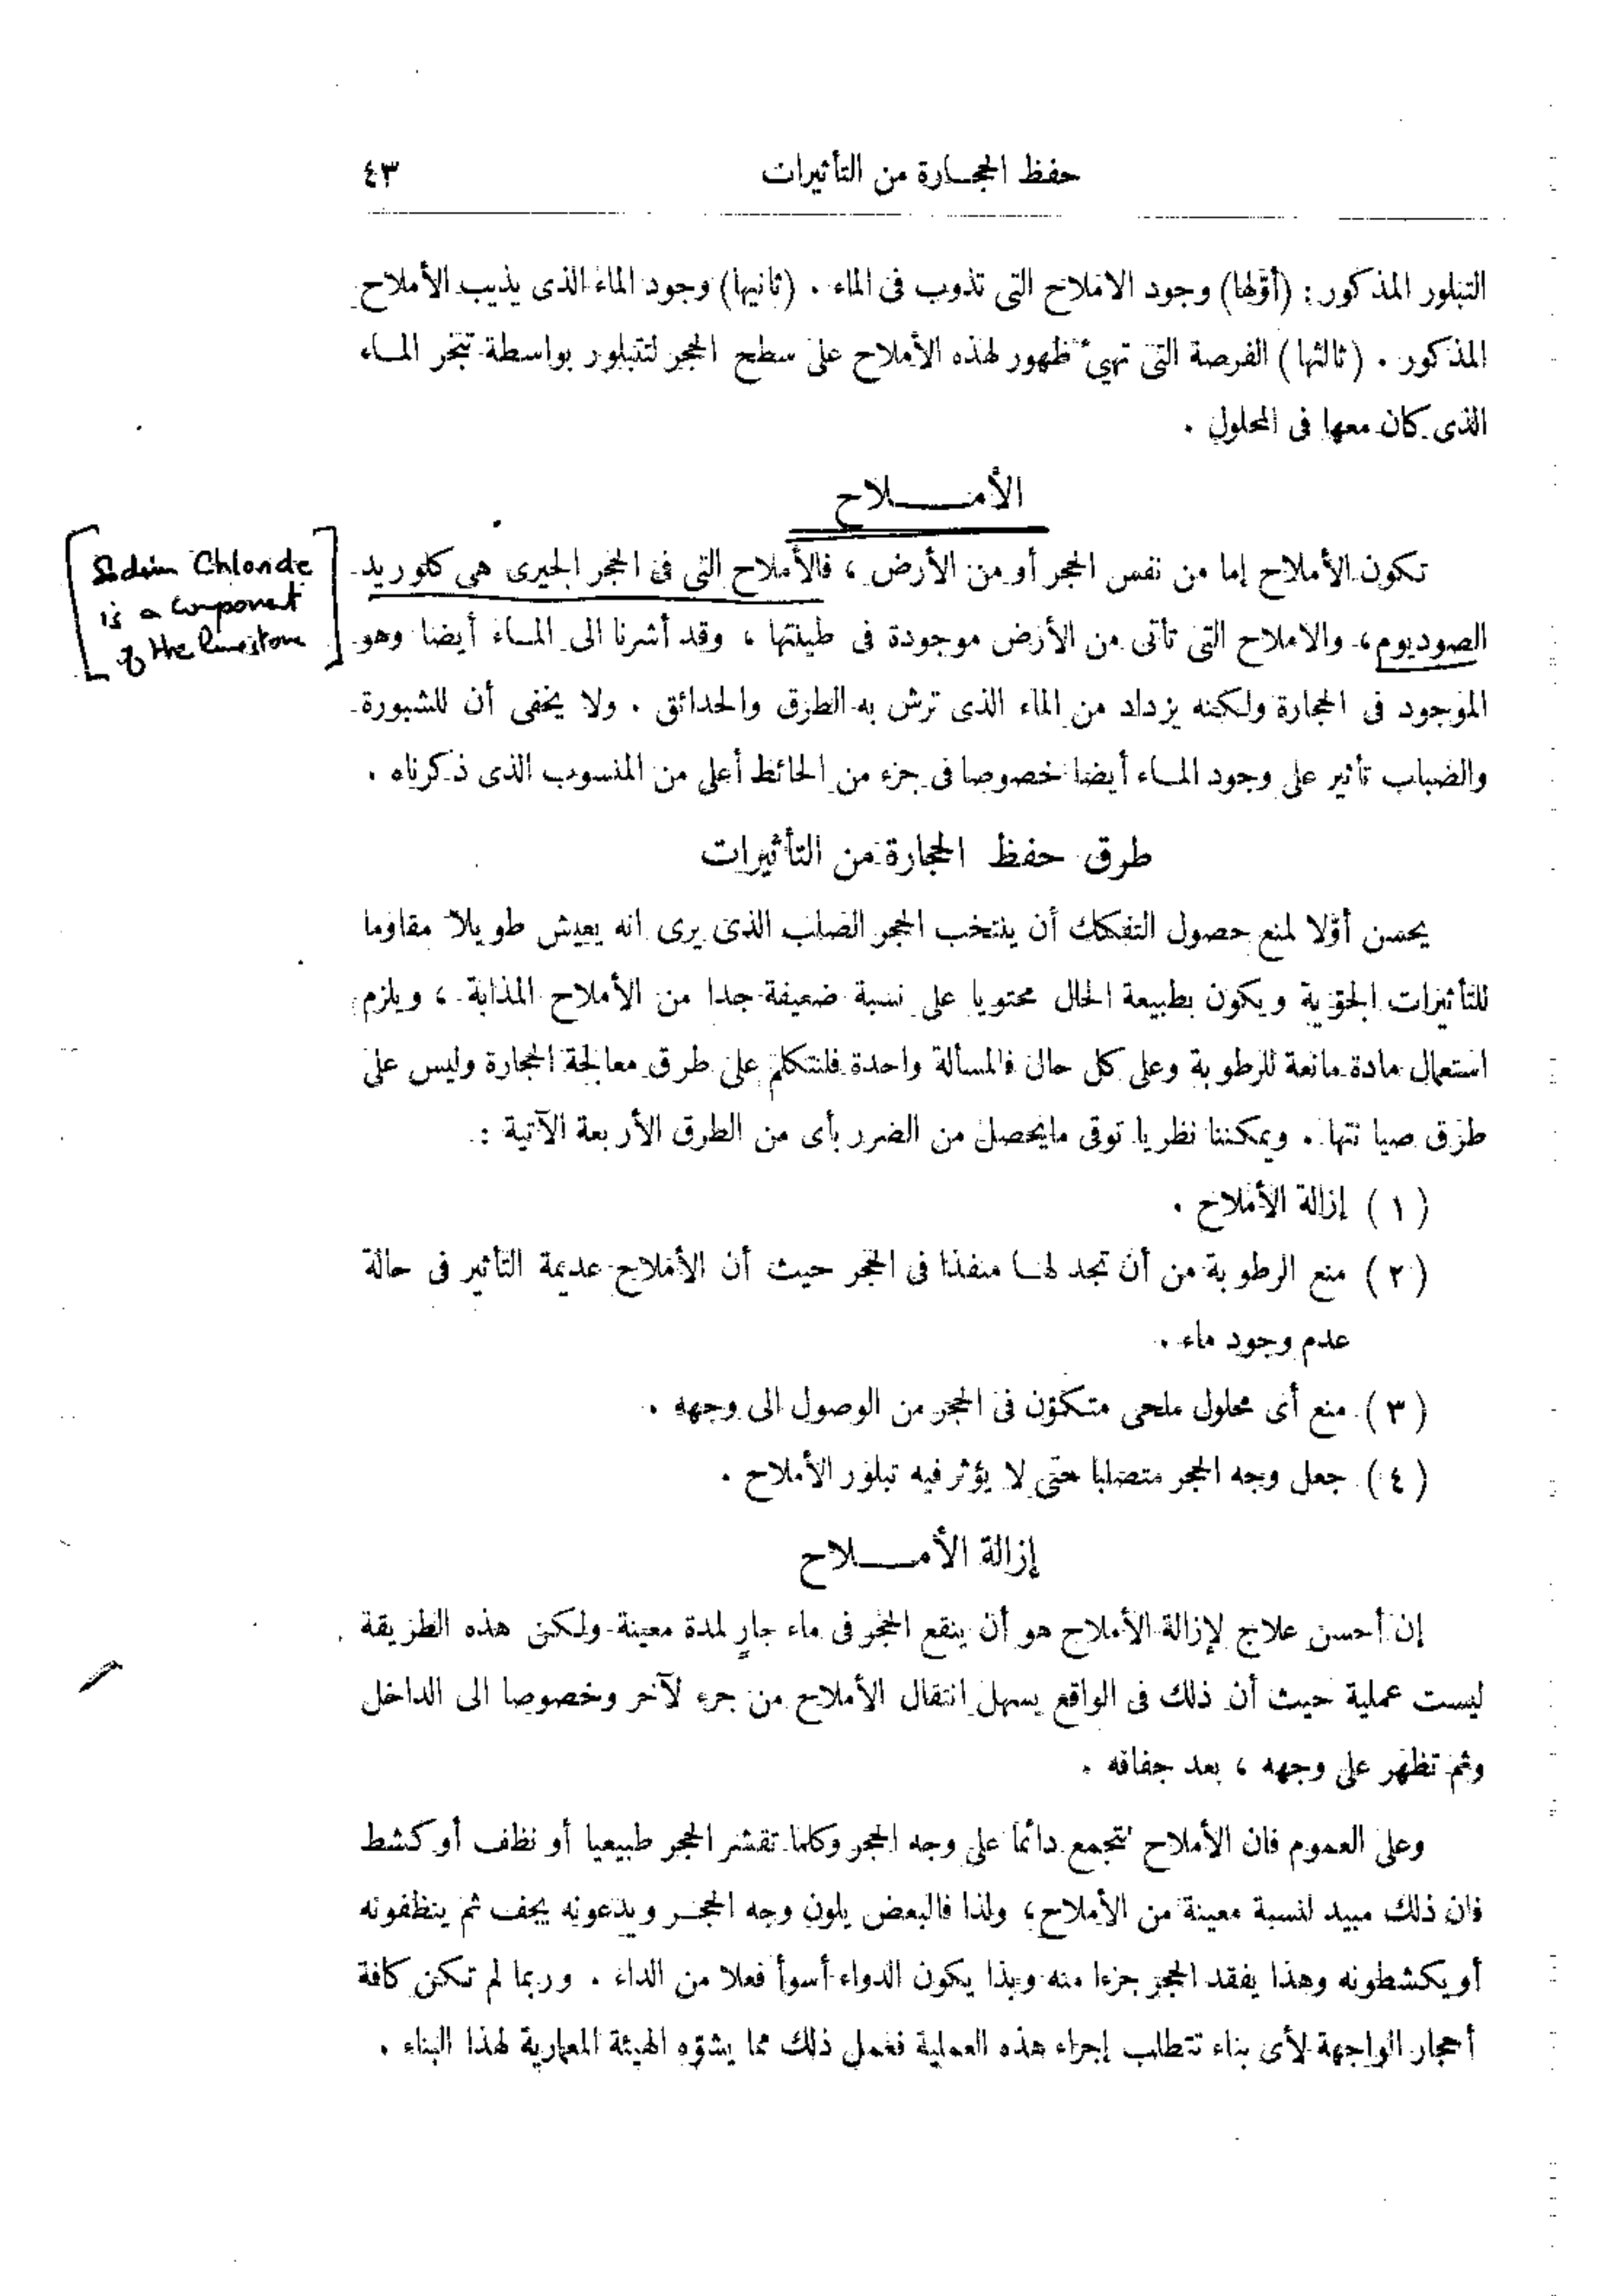 حفظ الحجارة من التأثيرات
٤٣
التبلور المذكور : (أوّلها) وجود الاملاح التى تذوب فى الماء . (ثانيها) وجود الماء الذى يذيب الأملاح
المذكور . (ثالثها) الفرصة التى تهيئ ظهور لهذه الأملاح على سطح الحجر لتتبلور بواسطة تبخر الماء
الذى كان معها فى المحلول .
الأملاح
تكون الأملاح إما من نفس الحجر أو من الأرض ، فالأملاح التى فى الحجر الجيرى هى كلوريد
الصوديوم ، والاملاح التى تأتى من الأرض موجودة فى طينتها ، وقد أشرنا الى الماء أيضا وهو
الموجود فى الحجارة ولكنه يزداد من الماء الذى ترش به الطرق والحدائق . ولا يخفى أن للشبورة
والضباب تأثير على وجود الماء أيضا خصوصا فى جزء من الحائط أعلى من المنسوب الذى ذكرناه .
Sodium Chloride
is a component
of the limestone
طرق حفظ الحجارة من التأثيرات
يحسن أوّلا لمنع حصول التفكك أن ينتخب الحجر الصلب الذى يرى انه يعيش طويلا مقاوما
للتأثيرات الجوّية ويكون بطبيعة الحال محتويا على نسبة ضعيفة جدا من الأملاح المذابة ، ويلزم
استعمال مادة مانعة للرطوبة وعلى كل حال فالمسألة واحدة فلنتكلم على طرق معالجة الحجارة وليس على
طرق صيانتها . ويمكننا نظريا توقى مايحصل من الضرر بأى من الطرق الأربعة الآتية :
( ١ ) إزالة الأملاح .
( ٢ ) منع الرطوبة من أن تجد لها منفذا فى الحجر حيث أن الأملاح عديمة التأثير فى حالة
عدم وجود ماء .
( ٣ ) منع أى محلول ملحى متكوّن فى الحجر من الوصول الى وجهه .
( ٤ ) جعل وجه الحجر متصلبا حتى لا يؤثر فيه تبلور الأملاح .
إزالة الأملاح
إن أحسن علاج لإزالة الأملاح هو أن ينقع الحجر فى ماء جارٍ لمدة معينة ولكن هذه الطريقة
ليست عملية حيث أن ذلك فى الواقع يسهل انتقال الأملاح من جزء لآخر وخصوصا الى الداخل
وثم تظهر على وجهه ، بعد جفافه .
وعلى العموم فان الأملاح تتجمع دائما على وجه الحجر وكلما تقشر الحجر طبيعيا أو نظف أو كشط
فان ذلك مبيد لنسبة معينة من الأملاح ، ولذا فالبعض يلون وجه الحجر ويدعونه يجف ثم ينظفونه
أو يكشطونه وهذا يفقد الحجر جزءا منه وبذا يكون الدواء أسوأ فعلا من الداء . وربما لم تكن كافة
أحجار الواجهة لأى بناء تتطلب إجراء هذه العملية فعمل ذلك مما يشوّه الهيئة المعمارية لهذا البناء .